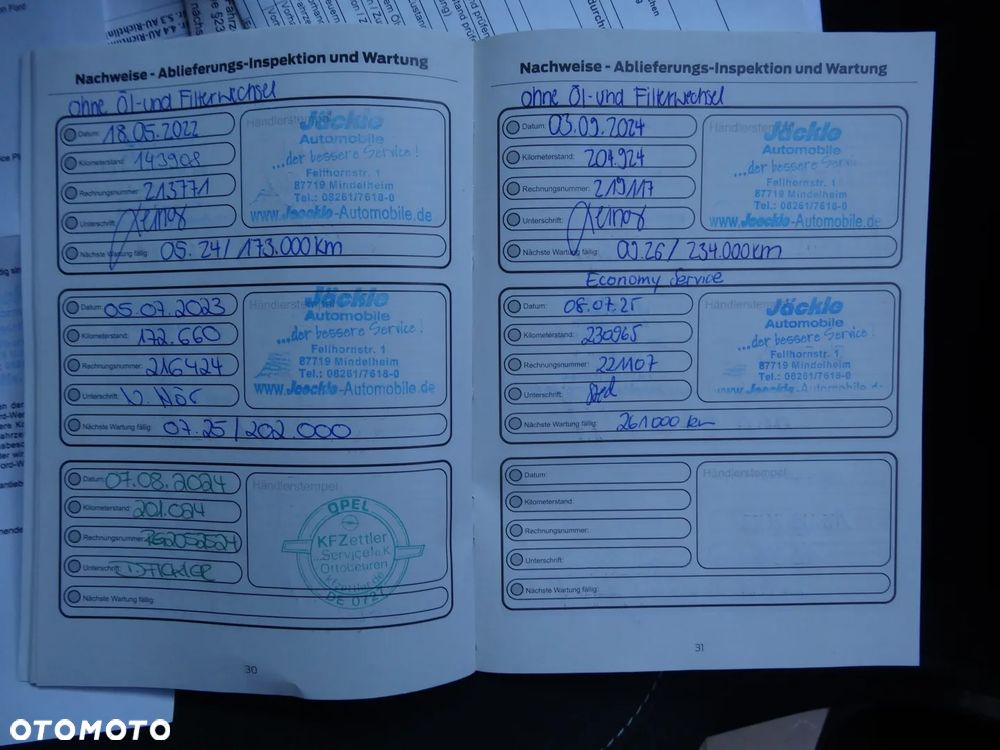 Nachweise - Ablieferungs-Inspektion und Wartung
ohne Öl-und Filterwechsel
Datum: 18.05.2022
Kilometerstand: 143908
Rechnungsnummer: 213771
Unterschrift:
Nächste Wartung fällig: 05.24/173.000km
Händlerstempel
Jäckle
Automobile
...der bessere Service!
Fellhornstr. 1
87719 Mindelheim
Tel.: 08261/7618-0
www.Jaeckle-Automobile.de
Datum: 05.07.2023
Kilometerstand: 172.660
Rechnungsnummer: 216424
Unterschrift:
Nächste Wartung fällig: 07.25/202.000
Händlerstempel
Jäckle
Automobile
...der bessere Service!
Fellhornstr. 1
87719 Mindelheim
Tel.: 08261/7618-0
www.Jaeckle-Automobile.de
Datum: 07.08.2024
Kilometerstand: 201.024
Rechnungsnummer:
Unterschrift:
Nächste Wartung fällig:
Händlerstempel
OPEL
KFZettler
Service e.K
Ottobeuren
kfzettler.de
DE 0721
30
Nachweise - Ablieferungs-Inspektion und Wartung
ohne Öl-und Filterwechsel
Datum: 03.09.2024
Kilometerstand: 204.924
Rechnungsnummer: 219117
Unterschrift:
Nächste Wartung fällig: 09.26/234.000km
Händlerstempel
Jäckle
Automobile
...der bessere Service
Fellhornstr. 1
87719 Mindelheim
Tel.: 08261/7618-0
www.Jaeckle-Automobile.de
Economy Service
Datum: 08.07.25
Kilometerstand: 230965
Rechnungsnummer: 221107
Unterschrift:
Nächste Wartung fällig: 261000 km
Händlerstempel
Jäckle
Automobile
...der bessere Service!
Fellhornstr. 1
87719 Mindelheim
Tel.: 08261/7618-0
www.Jaeckle-Automobile.de
Datum:
Kilometerstand:
Rechnungsnummer:
Unterschrift:
Nächste Wartung fällig:
Händlerstempel
31
OTOMOTO